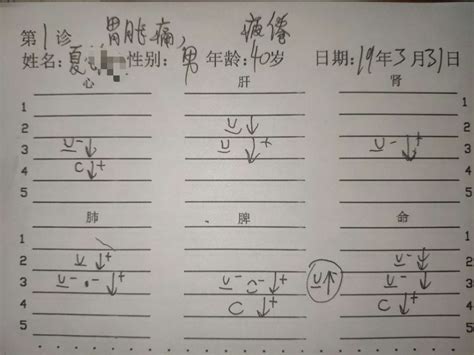 第1诊 胃胀痛, 疲倦
姓名:夏 性别:男 年龄:40岁 日期:19年3月31日
心 肝 肾
1 1
2 U↓ 2
3 U-↓ U↓+ U-↓+ 3
4 C↓+ 4
5 5
肺 脾 命
1 1
2 U↓+ U↓ 2
3 U-•-↓+ U-⌣-↓+ U↑- U-↓ 3
4 C↓+ C↓+ 4
5 5